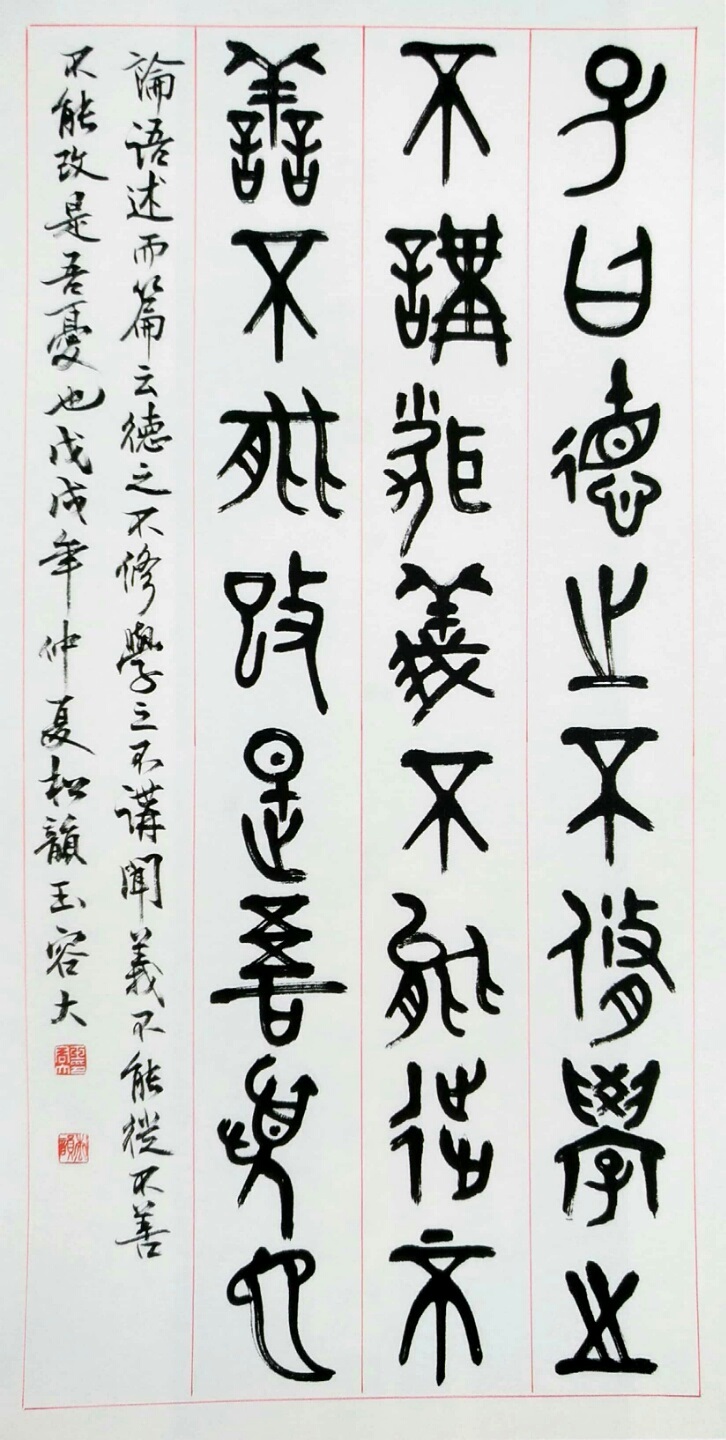 子曰德之不脩學之
不講聞義不能徙不
善不能改是吾憂也
論語述而篇云德之不修學之不講聞義不能徙不善
不能改是吾憂也戊戌年仲夏松韻玉容大